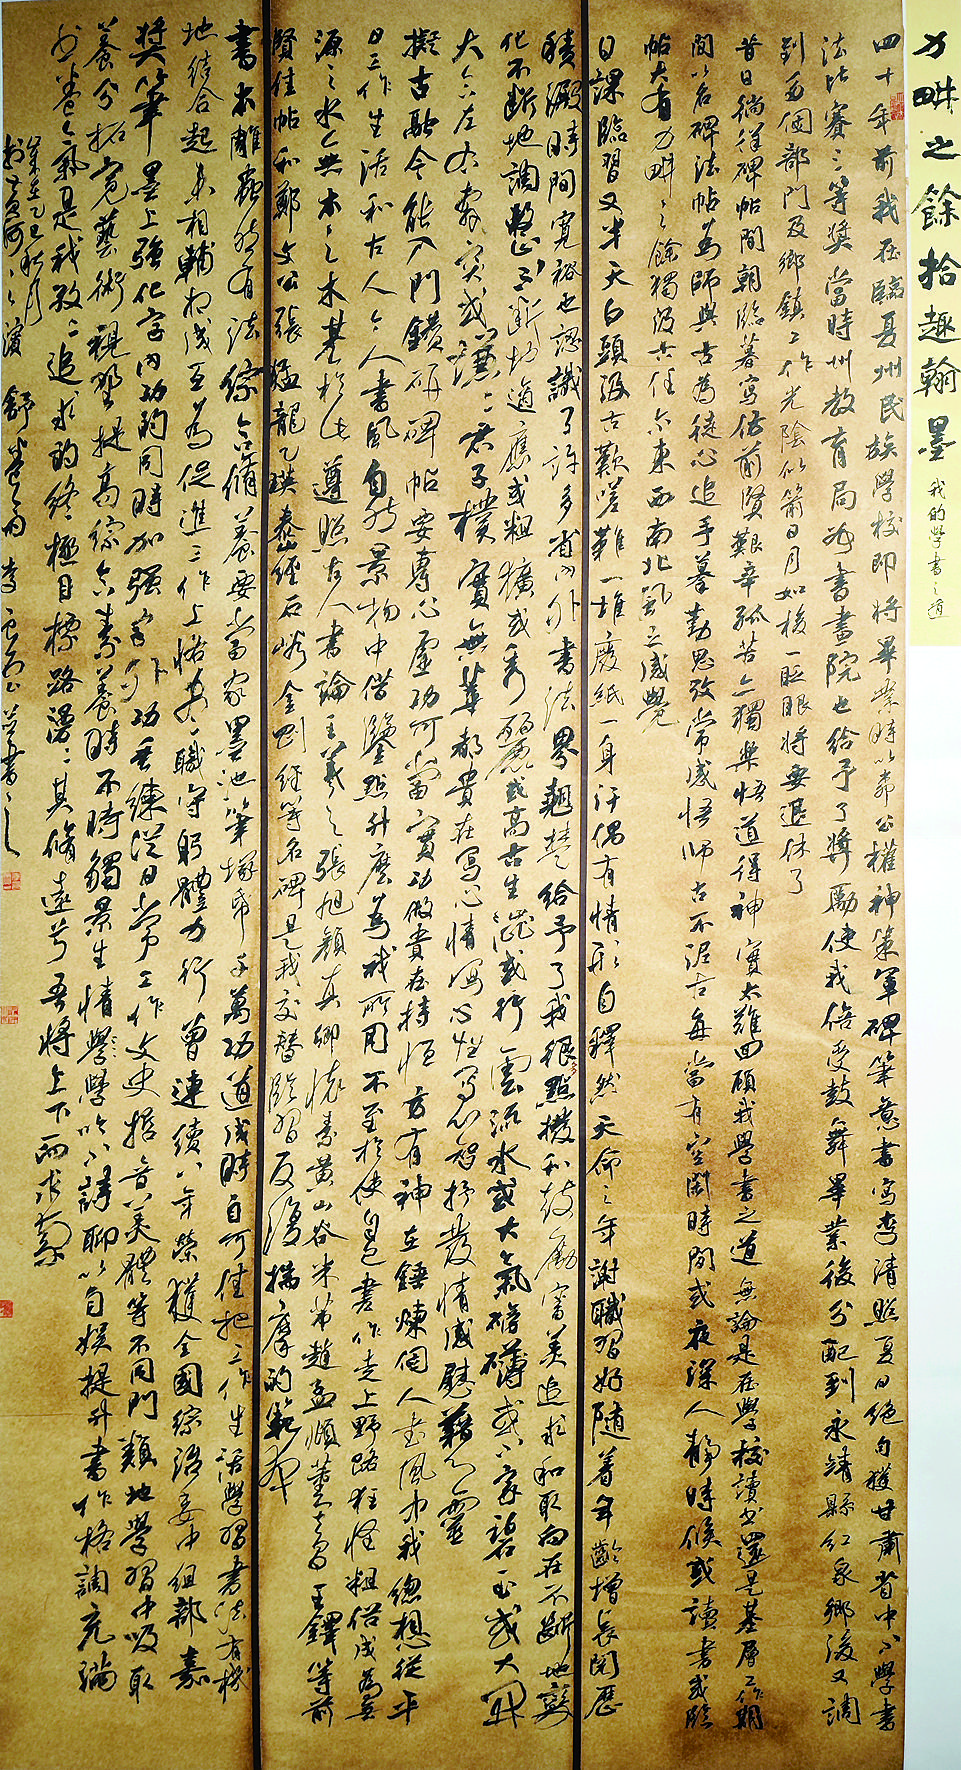 力畊之餘拾趣翰墨
我的學書之道
四十年前我在臨夏州民族學校即將畢業時以柳公權神策軍碑筆意書寫李清照夏日絕句獲甘肅省中小學書
法比賽三等獎當時州教育局如書畫院也給予了獎勵使我倍受鼓舞畢業後分配到永靖縣紅泉鄉後又調
到多個部門及鄉鎮工作光陰似箭日月如梭一眨眼將要退休了
昔日徜徉碑帖間朝臨暮寫仿前賢艱辛孤苦亦獨樂悟道得神實太難回顧我學書之道無論是在學校讀書還是基層工作期
間以名碑法帖為師與古為徒心追手摹勤思孜常感悟師古不泥古每當有空閑時間或夜深人靜時候或讀書或臨
帖大有力畊之餘獨汲古任尔東西南北風之感覺
日課臨習又半天白頭汲古歎嗟難一堆廢紙一身汗偶有情形自釋然天命之年謝職習好隨着年齡增長閱歷
積澱時間寬裕也認識了許多省內外書法界翹楚給予了我很點撥和鼓勵審美追求和取向在不斷地變
化不斷地調整不斷地適應或粗獷或秀麗或高古生澀或行雲流水或大氣磅礴或小家碧玉或大
大六左右 實或謙謙君子樸實無華都貴在寫心情寫心性寫心智抒發情感慰藉心靈
擬古融今能入門鑽研碑帖要專心虛功可當實功做貴在持恒方有神在錘煉個人書風中我總想從平
日工作生活和古人今人書風自然景物中借鑒點升麼為我所用不至於使自己書作走上野路狂怪粗俗成為無
源之水無本之木基於此遵照古人書論王羲之張旭顏真卿懷素黃山谷米芾趙孟頫董其昌王鐸等前
賢佳帖和鄭文公張猛龍乙瑛泰山經石峪金剛經等名碑是我交替臨習反復揣摩的範本
書本雕蟲然有法綜合脩養要當家墨池筆塚千萬功道成時自可佳把工作生活學習書法有機
地結合起來相輔相成互為促進工作上恪盡職守躬體力行曾連續八年榮獲全國綜治委中組部嘉
獎筆墨上強化字內功的同時加強字外功垂練從日常工作文史語音美體等不同門類地學習中吸取
養分拓寬藝術視野提高綜合素養時不時觸景生情學學吟詩聊以自娛提升書作格調充滿
書卷之氣是我孜孜追求的終極目標路漫漫其脩遠兮吾將上下而求索